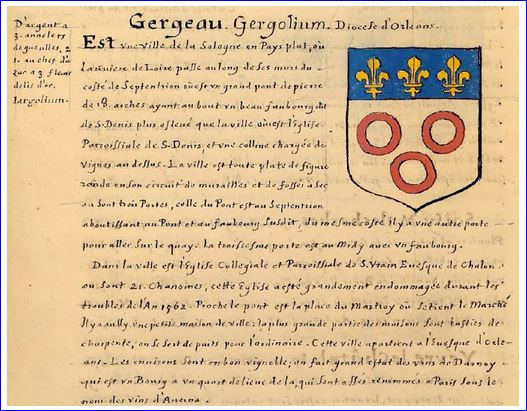 Gergeau. Gergolium. Diocese d'Orleans.
D'argent a
3. annelets
de gueulles, 2.
1. au chef d'a
zur a 3 fleurs
de lis d'or.
Iargolium.
Est vne ville de la Sologne en Pays plat, où
la riuiere de Loire passe au long de ses murs du
costé de Septentrion où est vn grand pont de pierre
de 18. arches ayant au bout vn beau faubourg dit
de S. Denis plus esleué que la ville, où est l'Eglise
Parroissiale de S. Denis, et vne colline chargée de
Vignes au dessus. La ville est toute plate de figure
ronde en son circuit de murailles et de fossés à Sec
ou Sont trois Portes, celle du Pont est au Septentrion
aboutissant au Pont et au faubourg Susdit, du mesme costé il y a vne autre porte
pour aller Sur le quay. la troisiesme porte est au Midy auec vn faubourg.
Dans la ville est l'Eglise Collegiale et Parroissiale de S. Vrain Euesque de Chalon
ou Sont 21. Chanoines, cette Eglise a esté grandement endommagée durant les
troubles de l'An 1562. Proche le pont est la place du Martroy où Se tient le Marché
Il y a aussy vne petite maison de ville: la plus grande partie des maisons Sont basties de
charpente, on se sert de puits pour l'ordinaire. Cette ville apartient a l'Euesque d'Orle-
ans. Les enuirons Sont en bon vignoble; on fait grand estat des vins de Darnoy
qui est vn Bourg a vn quart de lieue de la, qui sont asses renommés a Paris Sous le
nom des vins d'Auerna.